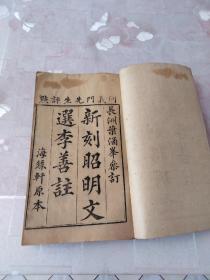 何義門先生評點
長洲葉涵峯叅訂
新刻昭明文
選李善註
海録軒原本